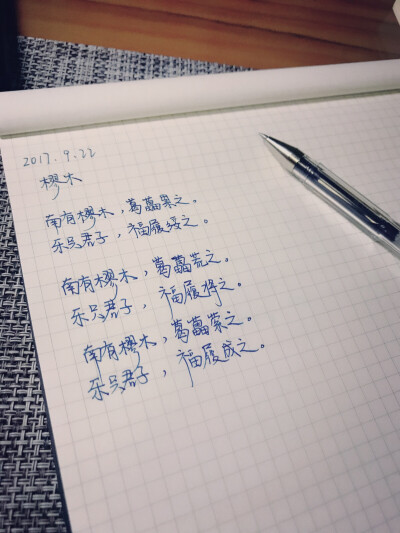 2017.9.22
樛木
南有樛木，葛藟累之。
乐只君子，福履绥之。
南有樛木，葛藟荒之。
乐只君子，福履将之。
南有樛木，葛藟萦之。
乐只君子，福履成之。